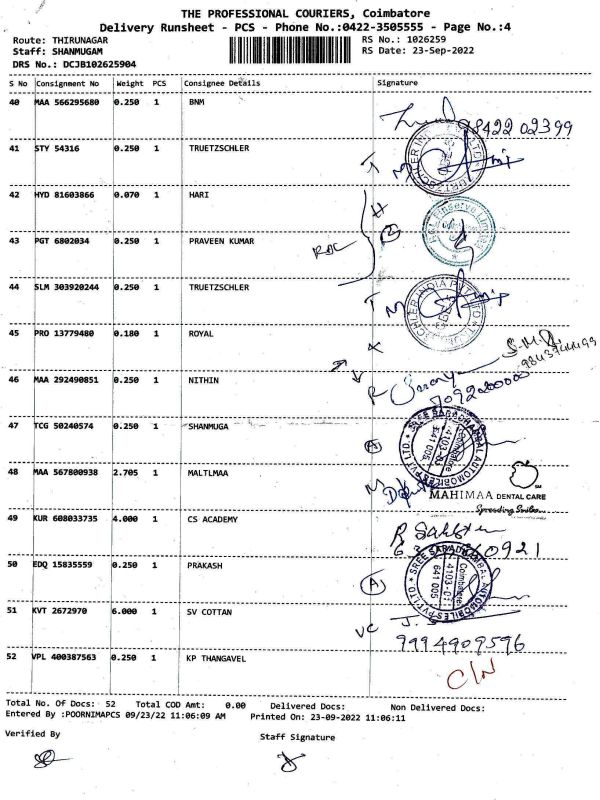 THE PROFESSIONAL COURIERS, Coimbatore
Delivery Runsheet - PCS - Phone No.:0422-3505555 - Page No.:4
Route: THIRUNAGAR RS No.: 1026259
Staff: SHANMUGAM RS Date: 23-Sep-2022
DRS No.: DCJB102625904
S No Consignment No Weight PCS Consignee Details Signature
40 MAA 566295680 0.250 1 BNM
98422 02399
41 STY 54316 0.250 1 TRUETZSCHLER
T M
42 HYD 81603866 0.070 1 HARI
H
43 PGT 6802034 0.250 1 PRAVEEN KUMAR
44 SLM 303920244 0.250 1 TRUETZSCHLER
T M
45 PRO 13779480 0.180 1 ROYAL
46 MAA 292490851 0.250 1 NITHIN
R
47 TCG 50240574 0.250 1 SHANMUGA
A
SREE SARADHAMBAL AUTOMOBILES PVT. LTD.
48 MAA 567800938 2.705 1 MALTLMAA
M
MAHIMAA DENTAL CARE
Spreading Smiles
49 KUR 608033735 4.000 1 CS ACADEMY
50 EDQ 15835559 0.250 1 PRAKASH
A
SREE SARADHAMBAL AUTOMOBILES PVT. LTD.
Coimbatore
641 005
51 KVT 2672970 6.000 1 SV COTTAN
VC J.
9994909596
52 VPL 400387563 0.250 1 KP THANGAVEL
C/N
Total No. Of Docs: 52 Total COD Amt: 0.00 Delivered Docs: Non Delivered Docs:
Entered By :POORNIMAPCS 09/23/22 11:06:09 AM Printed On: 23-09-2022 11:06:11
Verified By Staff Signature